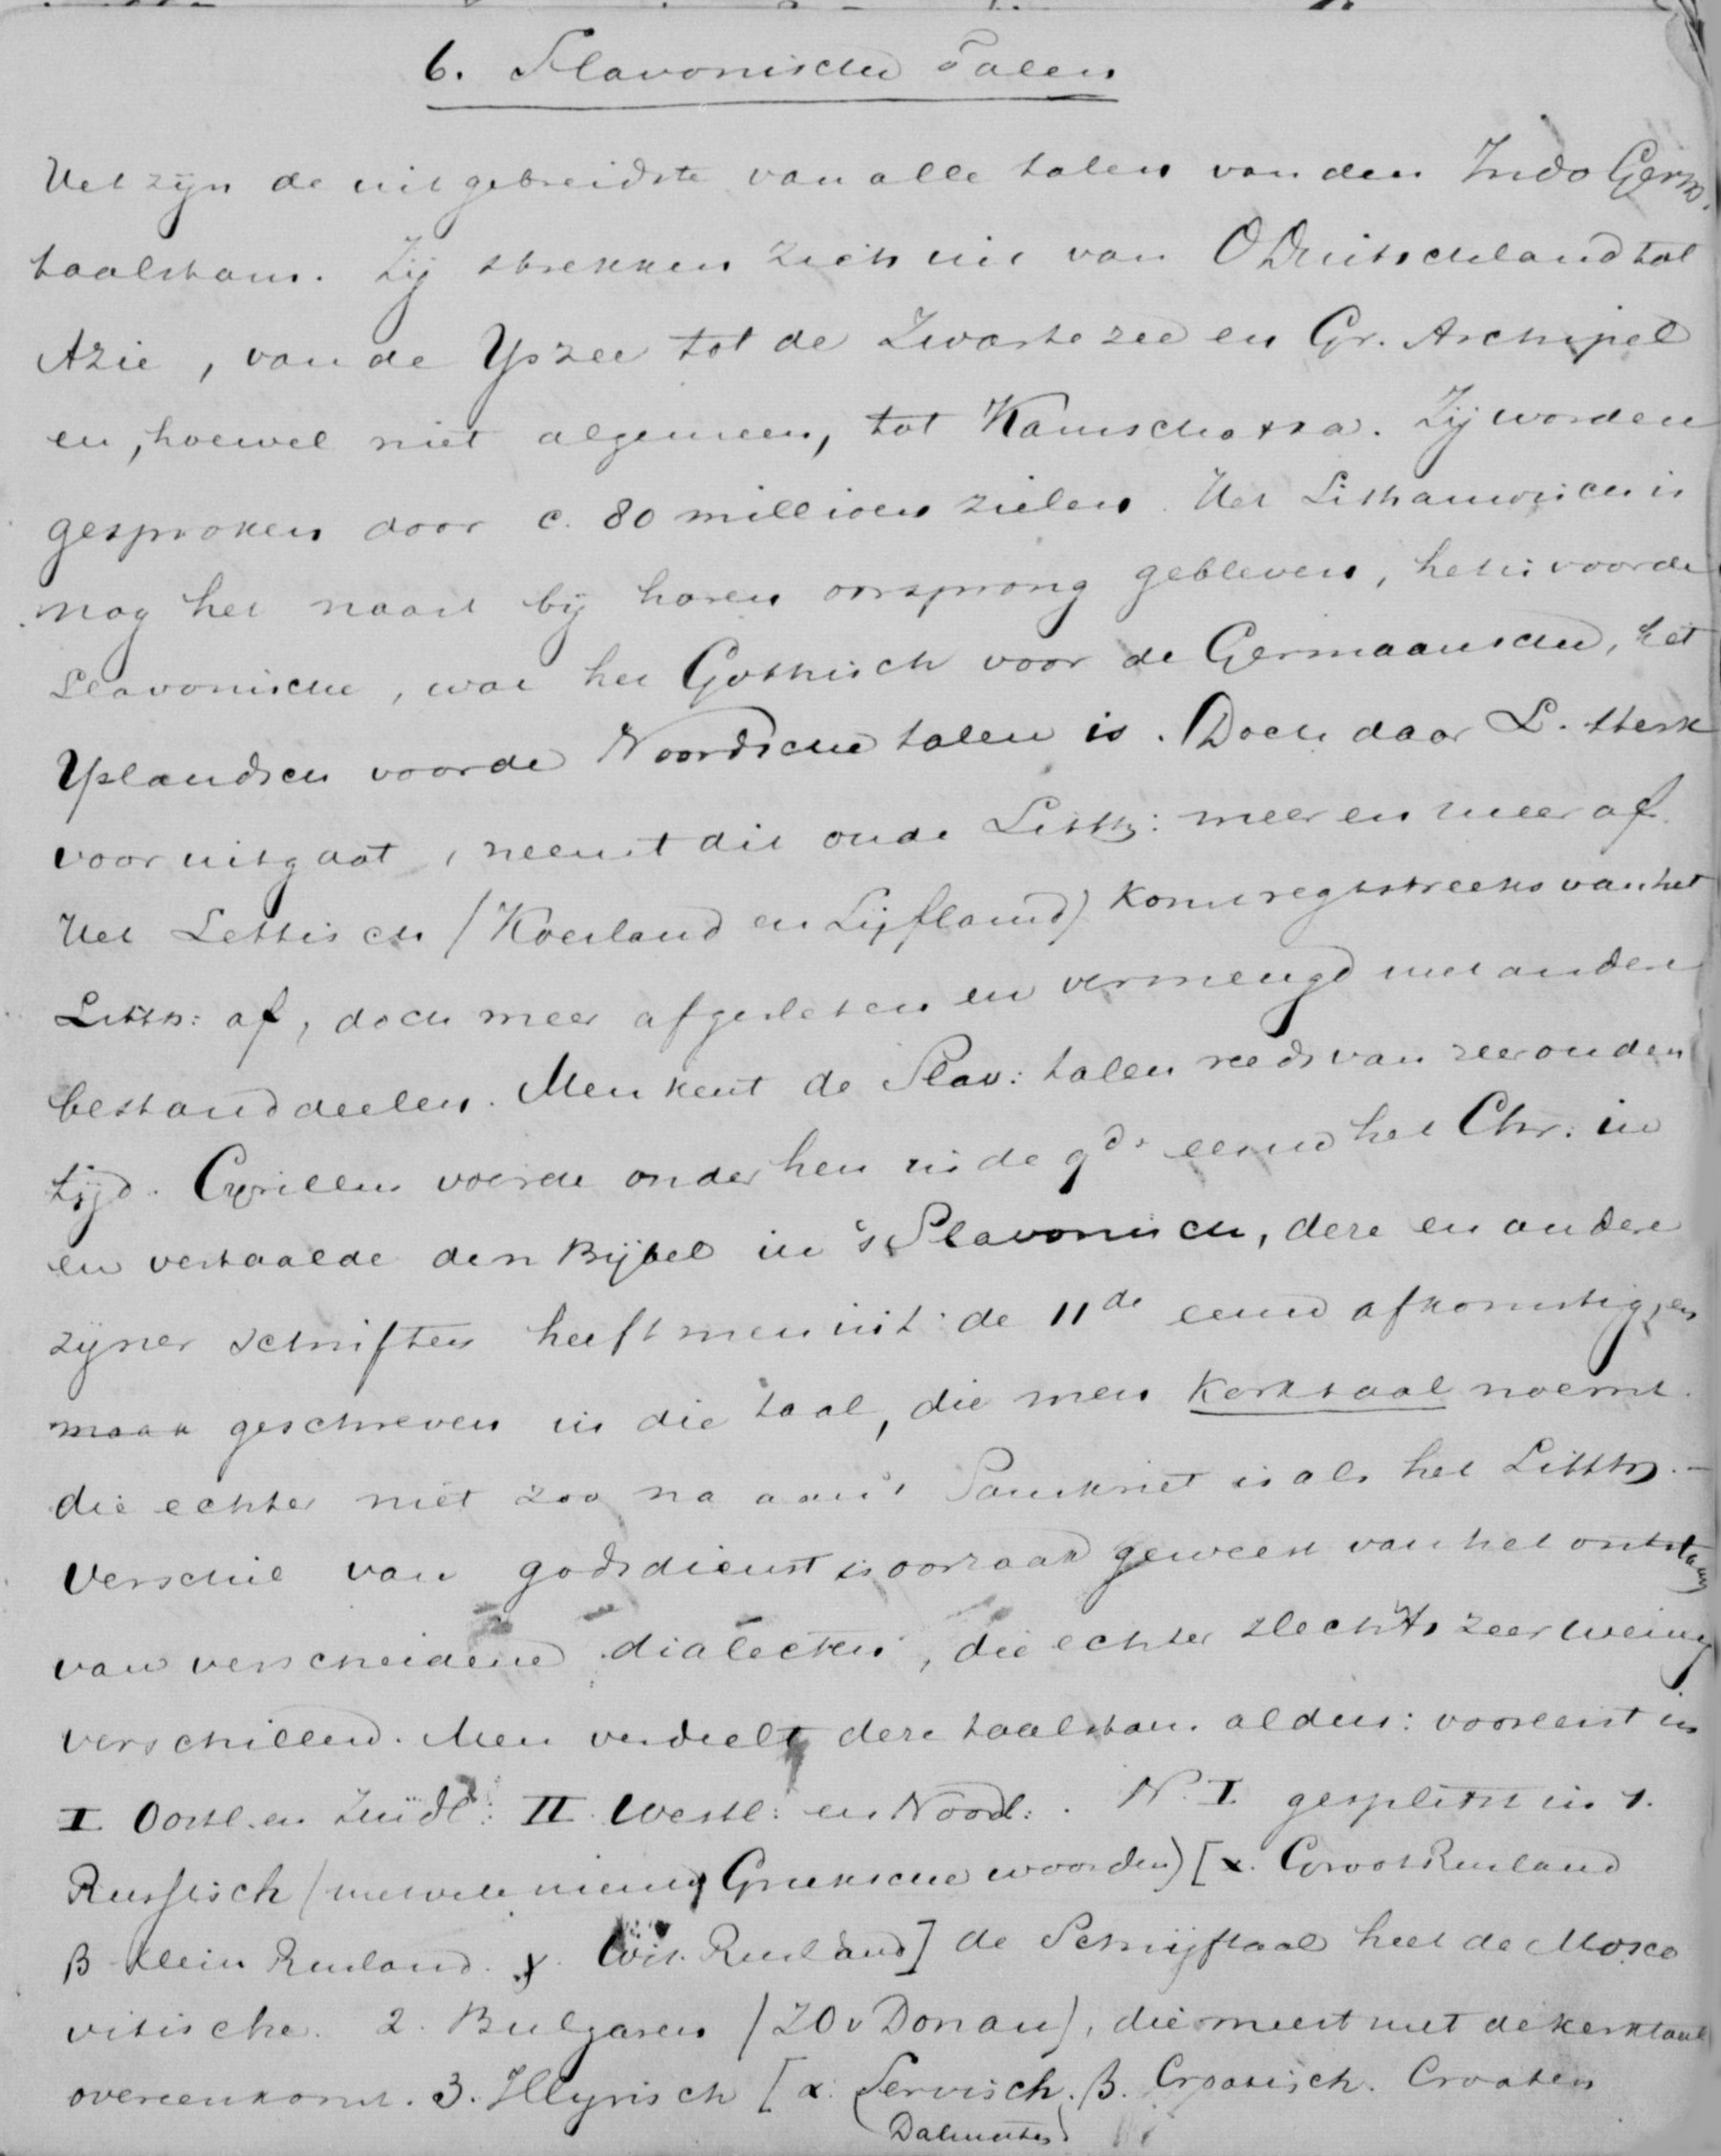 6. Slavonische Talen
Het zijn de uitgebreidste van alle talen van den Indo Germ.
taalstam. Zij strekken zich uit van O Duitschland tot
Azie, van de Yszee tot de Zwarte zee en Gr. Archipel
en, hoewel niet algemeen, tot Kamschatka. Zij worden
gesproken door c. 80 millioen zielen. Het Lithauwisch is
nog het naast bij haren oorsprong gebleven, het is voor de
Slavonische, wat het Gothisch voor de Germaansche, het
Yslandsch voor de Noordsche talen is. Doch daar L. sterk
vooruitgaat, neemt dit oude Litth: meer en meer af.
Het Lettisch (Koerland en Lijfland) komt regtstreeks van het
Litth: af, doch meer afgesleten en vermengd met andere
bestanddeelen. Men kent de Slav: talen reeds van zeer ouden
tijd. Cyrillus voerde onder hen in de 9de eeuw het Chr: in
en vertaalde den Bijbel in 's Slavonisch, deze en andere
zijner schriften heeft men uit de 11de eeuw afkomstig, en
maar geschreven in die taal, die men Kerktaal noemt.
die echter niet zoo na aan 't Sanskriet is als het Litth. –
Verschil van godsdienst is oorzaak geweest van het ontstaan
van verscheidene dialecten, die echter slechts zeer weinig
verschillend. Men verdeelt deze taalstam aldus: vooreerst in
I Oostl. en Zuidl: II Westl: en Noord: . N. I gesplitst in 1.
Russisch (met vele nieuw Grieksche woorden) [α. Groot Rusland
β Klein Rusland. γ. Wit. Rusland] de Schrijftaal heet de Mosco
vitische. 2. Bulgaren (ZO v Donau), die meest met de kerktaal
overeenkomt. 3. Illyrisch [α. Servisch. β. Croatisch. Croaten
(Dalmaten)